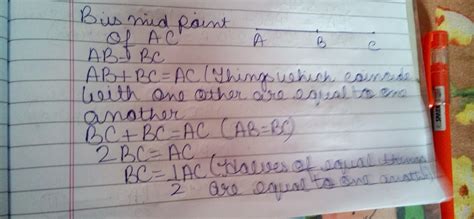 B is mid point
of AC
A B C
AB=BC
AB+BC=AC (Things which coincide
with one other are equal to one
another
BC+BC=AC (AB=BC)
2BC=AC
BC=1/2 AC (Halves of equal things
are equal to one another)